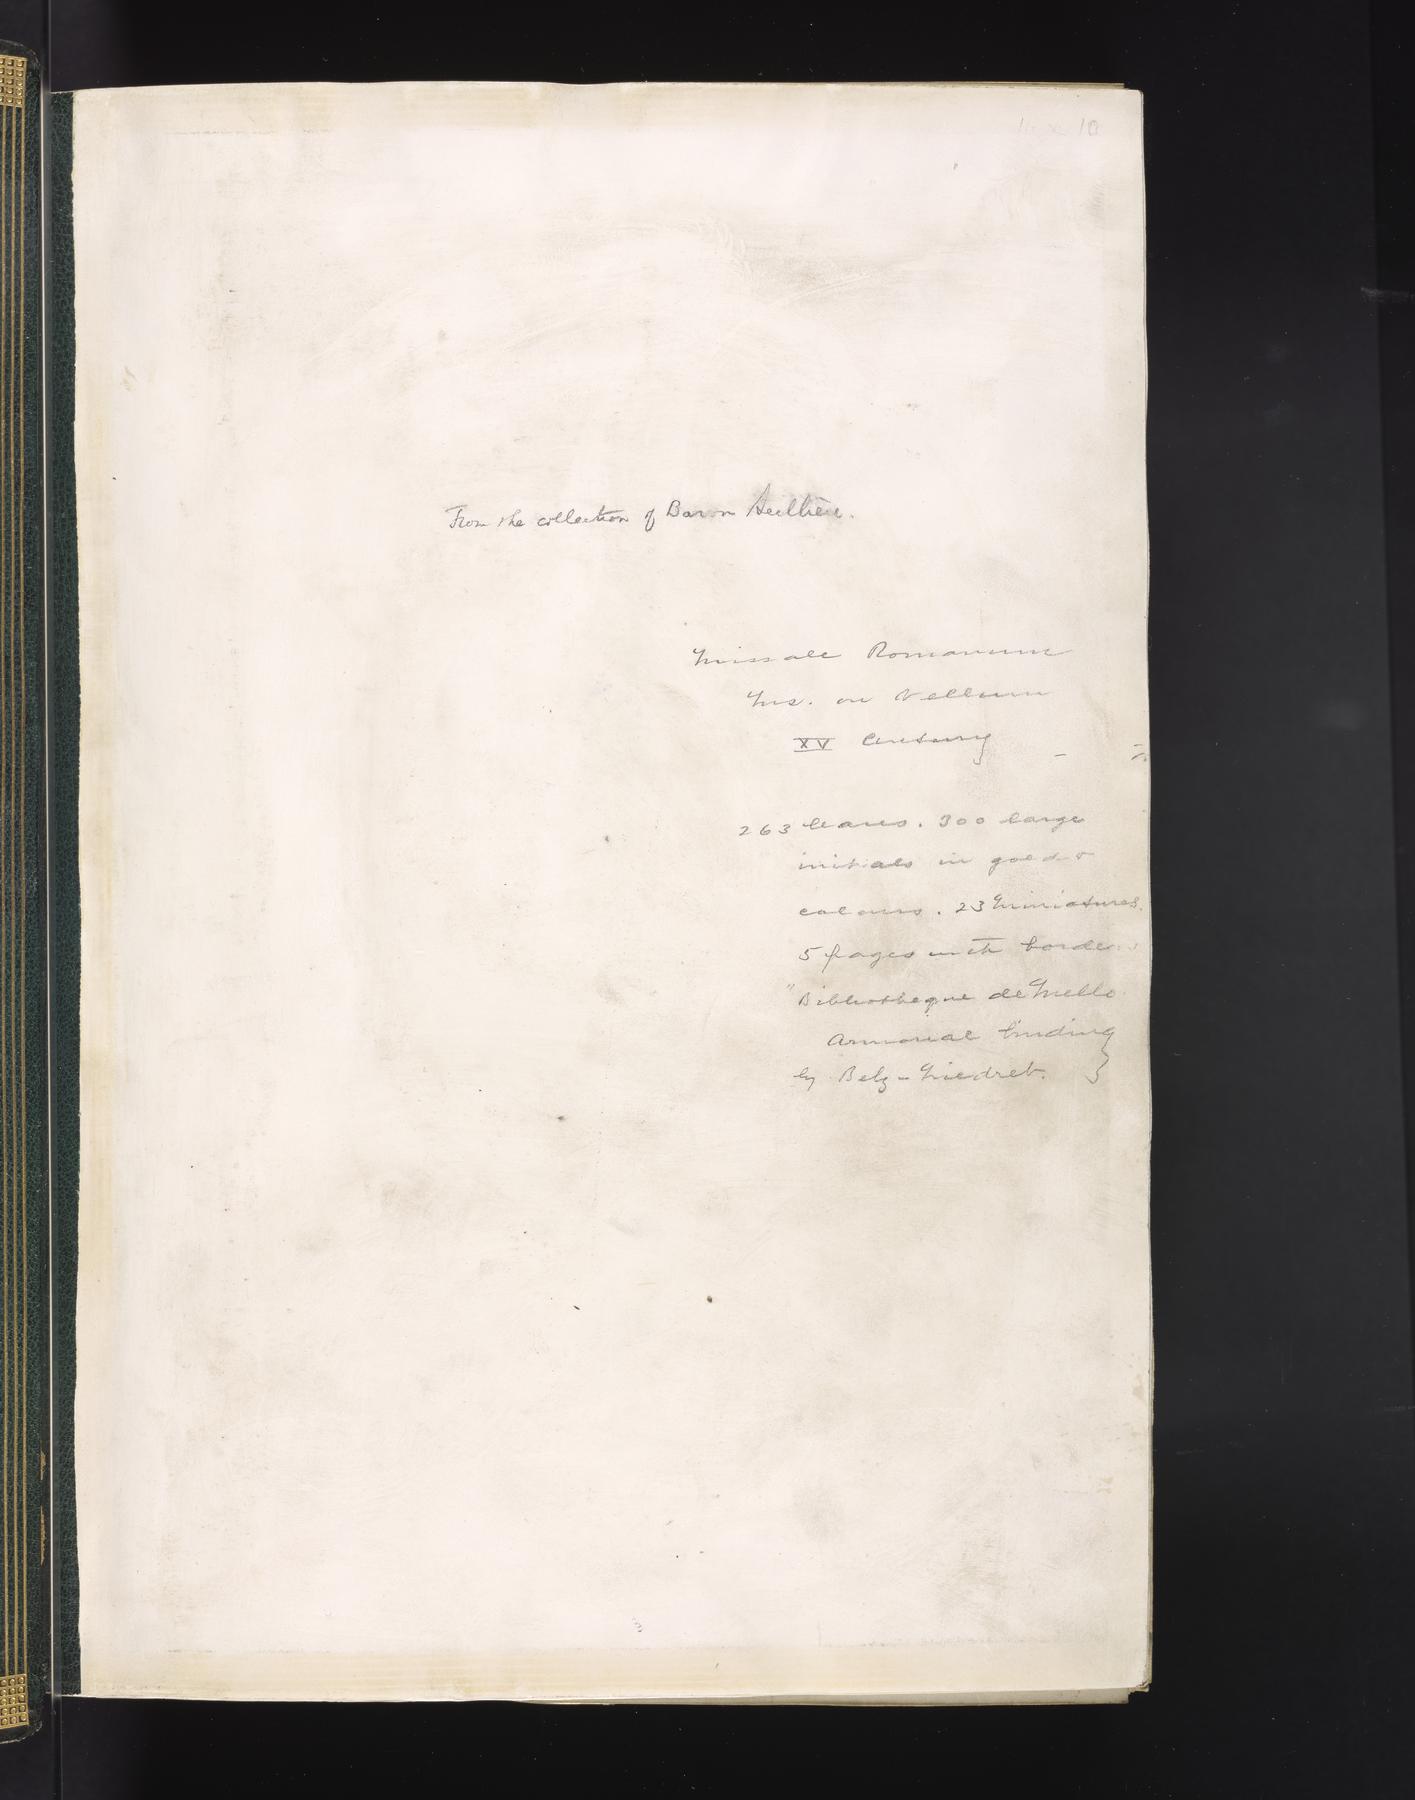 From the collection of Baron Seillière.
Missale Romanum
Ms. on Vellum
XV Century
263 leaves. 300 large
initials in gold &
colours. 23 Miniatures.
5 pages with borders
"Bibliotheque de Mello
Armorial binding
by Belz-Niedreé. }
3